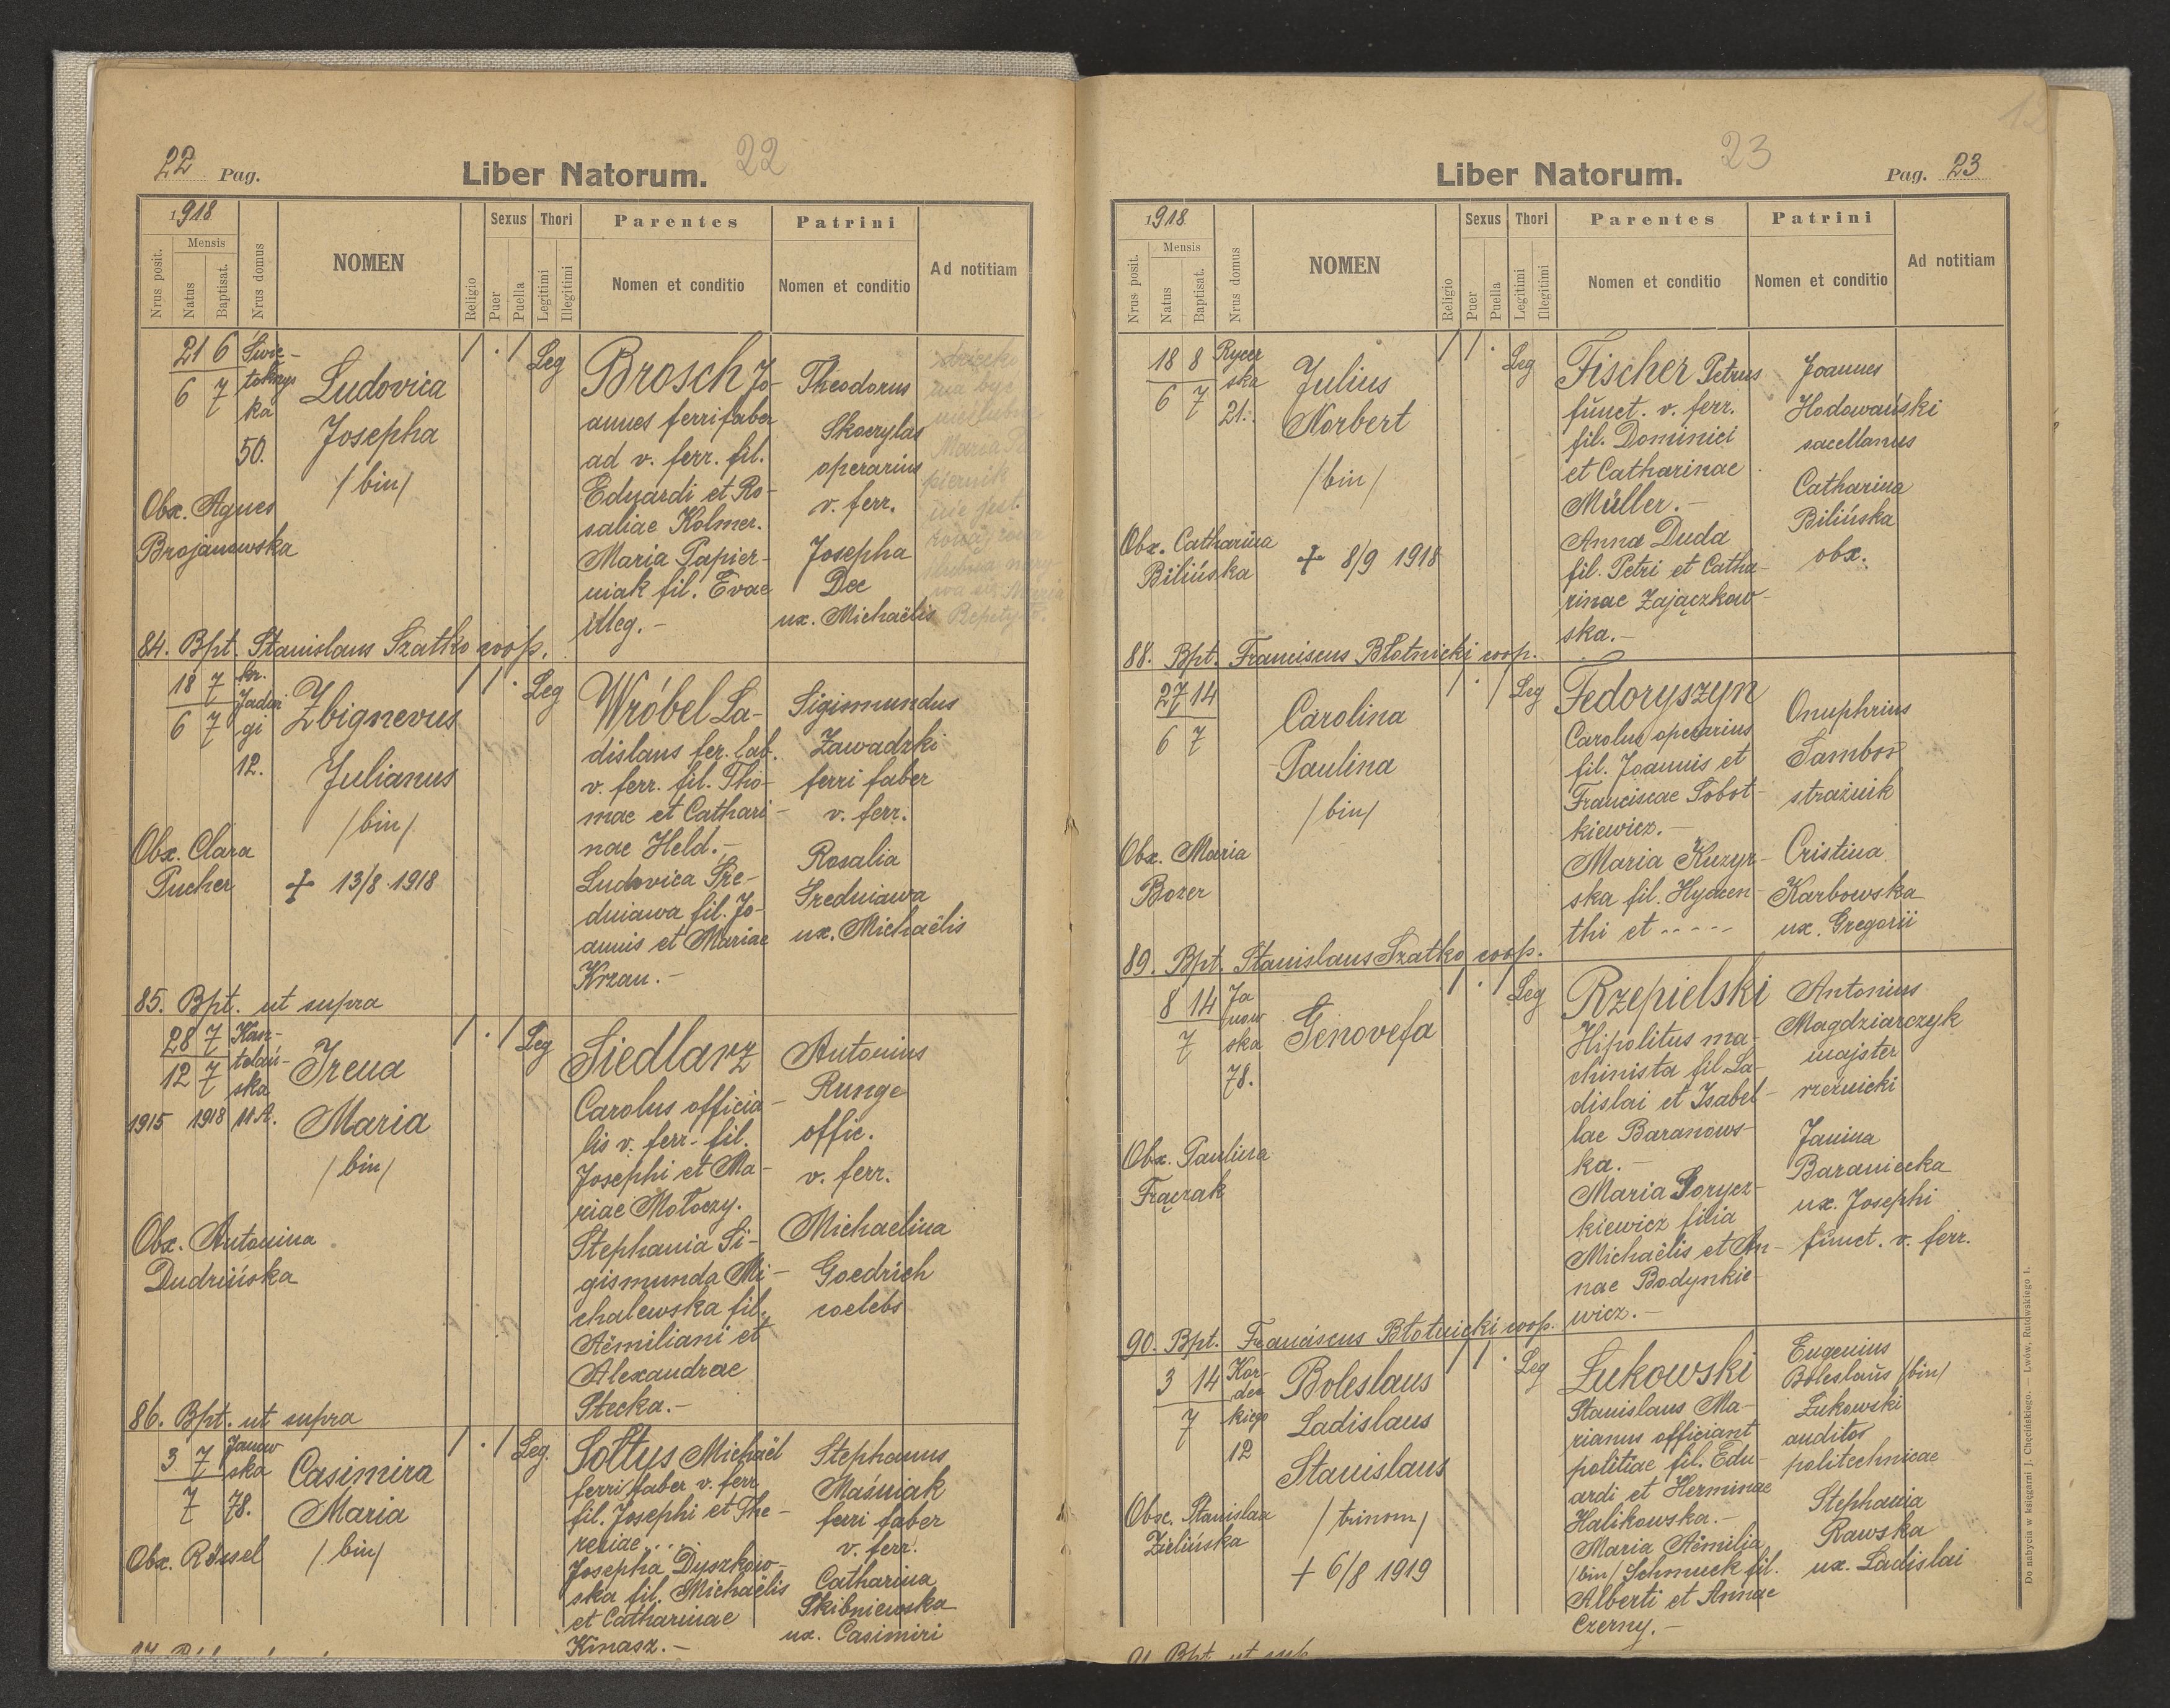 22 Pag. Liber Natorum. 22
1918
Nrus posit.
Mensis
Natus
Baptisat.
Nrus domus
NOMEN
Religio
Sexus
Puer
Puella
Thori
Legitimi
Illegitimi
Parentes
Nomen et conditio
Patrini
Nomen et conditio
Ad notitiam
21 6
6 7
Świę-
tokrzys
ka
50.
Ludovica
Josepha
/bin/
1 . 1 Leg
Obx. Agnes
Brojanowska
Brosch Jo-
annes ferri faber
ad v. ferr. fil.
Eduardi et Ro-
saliae Kolmer.
Maria Papier-
niak fil. Evae
illeg.-
Theodorus
Skoczylas
operarius
v. ferr.
Josepha
Dec
ux. Michaëlis
dziecko
ma być
nieślubne
Maria Pa
piernik
nie jest
84. Bpt. Stanislaus Szatko coop.
18 7
6 7
kr.
Jadwi
gi
12.
Zbignevus
Julianus
/bin/
+ 13/8 1918
1 1 . Leg
Obx. Clara
Pucher
Wróbel La-
dislaus fer. lab.
v. ferr. fil. Tho-
mae et Cathari-
nae Held.-
Ludovica Sre-
dniawa fil. Jo-
annis et Mariae
Krzan.-
Sigismundus
Zawadzki
ferri faber
v. ferr.
Rosalia
Sredniawa
ux. Michaëlis
85. Bpt. ut supra
28 7
12 7
1915 1918
Kasz-
telań-
ska
11 A.
Irena
Maria
/bin/
1 . 1 Leg
Obx. Antonina
Dudzińska
Siedlarz
Carolus officia-
lis v. ferr. fil.
Josephi et Ma-
riae Mołoczy.
Stephania Si-
gismunda Mi-
chalewska fil.
Aëmiliani et
Alexandrae
Stecka.-
Antonius
Runge
offic.
v. ferr.
Michaelina
Goedrich
coelebs
86. Bpt. ut supra
3 7
7
Janow
ska
78.
Casimira
Maria
/bin/
1 . 1 Leg.
Obx. Rössel
Sołtys Michaël
ferri faber v. ferr.
fil. Josephi et The-
resiae . . .
Josepha Dyszkow-
ska fil. Michaëlis
et Catharinae
Kinasz.-
Stephanus
Maśniak
ferri faber
v. ferr.
Catharina
Skibniewska
ux. Casimiri
Liber Natorum. 23 Pag. 23
1918
Nrus posit.
Mensis
Natus
Baptisat.
Nrus domus
NOMEN
Religio
Sexus
Puer
Puella
Thori
Legitimi
Illegitimi
Parentes
Nomen et conditio
Patrini
Nomen et conditio
Ad notitiam
18 8
6 7
Rycer
ska
21.
Julius
Norbert
/bin/
+ 8/9 1918
1 1 . Leg
Obx. Catharina
Bilińska
Fischer Petrus
funct. v. ferr.
fil. Dominici
et Catharinae
Müller.-
Anna Duda
fil. Petri et Catha-
rinae Zajączkow-
ska.-
Joannes
Hodowański
sacellanus
Catharina
Bilińska
obx.
88. Bpt. Franciscus Błotnicki coop.
27 14
6 7
Carolina
Paulina
/bin/
1 . 1 Leg
Obx. Maria
Bozer
Fedoryszyn
Carolus operarius
fil. Joannis et
Franciscae Sobot-
kiewicz.-
Maria Kuzyr-
ska fil. Hyacen-
thi et -----
Onuphrius
Sambor
strażnik
Cristina
Karbowska
ux. Gregorii
89. Bpt. Stanislaus Szatko coop.
8 14
7
Ja
now
ska
78.
Genovefa
1 . 1 Leg
Obx. Paulina
Frączak
Rzepielski
Hipolitus ma-
chinista fil. La-
dislai et Isabel-
lae Baranows-
ka.-
Maria Gorycz-
kiewicz filia
Michaëlis et An-
nae Bodynkie-
wicz.-
Antonius
Magdziarczyk
majster
rzeźnicki
Janina
Baraniecka
ux. Josephi
funct. v. ferr.
90. Bpt. Franciscus Błotnicki coop.
3 14
7
Kor-
dec
kiego
12
Boleslaus
Ladislaus
Stanislaus
/trinom/
+ 6/8 1919
1 1 . Leg
Obx. Stanislaa
Zielińska
Łukowski
Stanislaus Ma-
rianus officiant
politiae fil. Edu-
ardi et Herminae
Halikowska.-
Maria Aëmilia
/bin/ Schmuck fil.
Alberti et Annae
Czerny.-
Eugenius
Boleslaus /bin/
Łukowski
auditor
politechnicae
Stephania
Rawska
ux. Ladislai
91 Bpt. ut
Do nabycia w księgarni J. Chęcińskiego. Lwów, Rutowskiego 1.